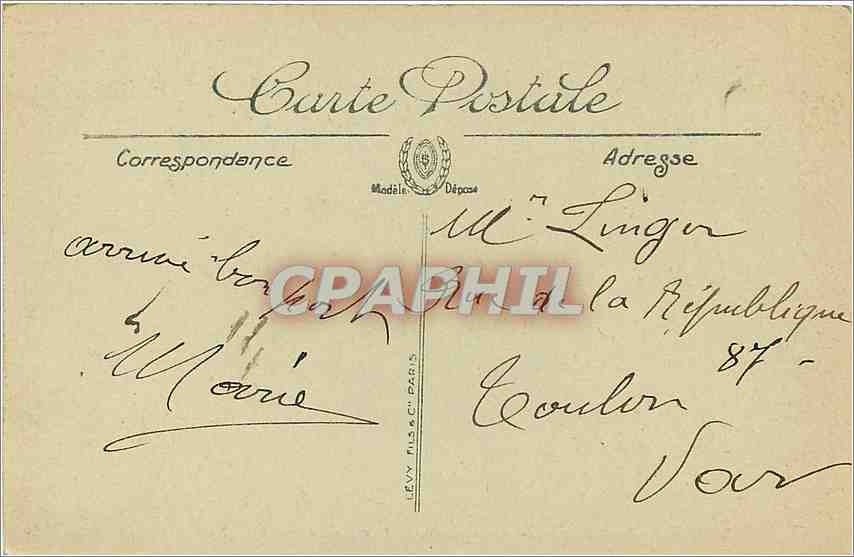 Carte Postale
Correspondance
Adresse
Modèle Déposé
arrivé bon port
Marie
CPARHIL
LÉVY FILS & Cie PARIS
Mr Linger
Rue de la République
87 -
Toulon
Var